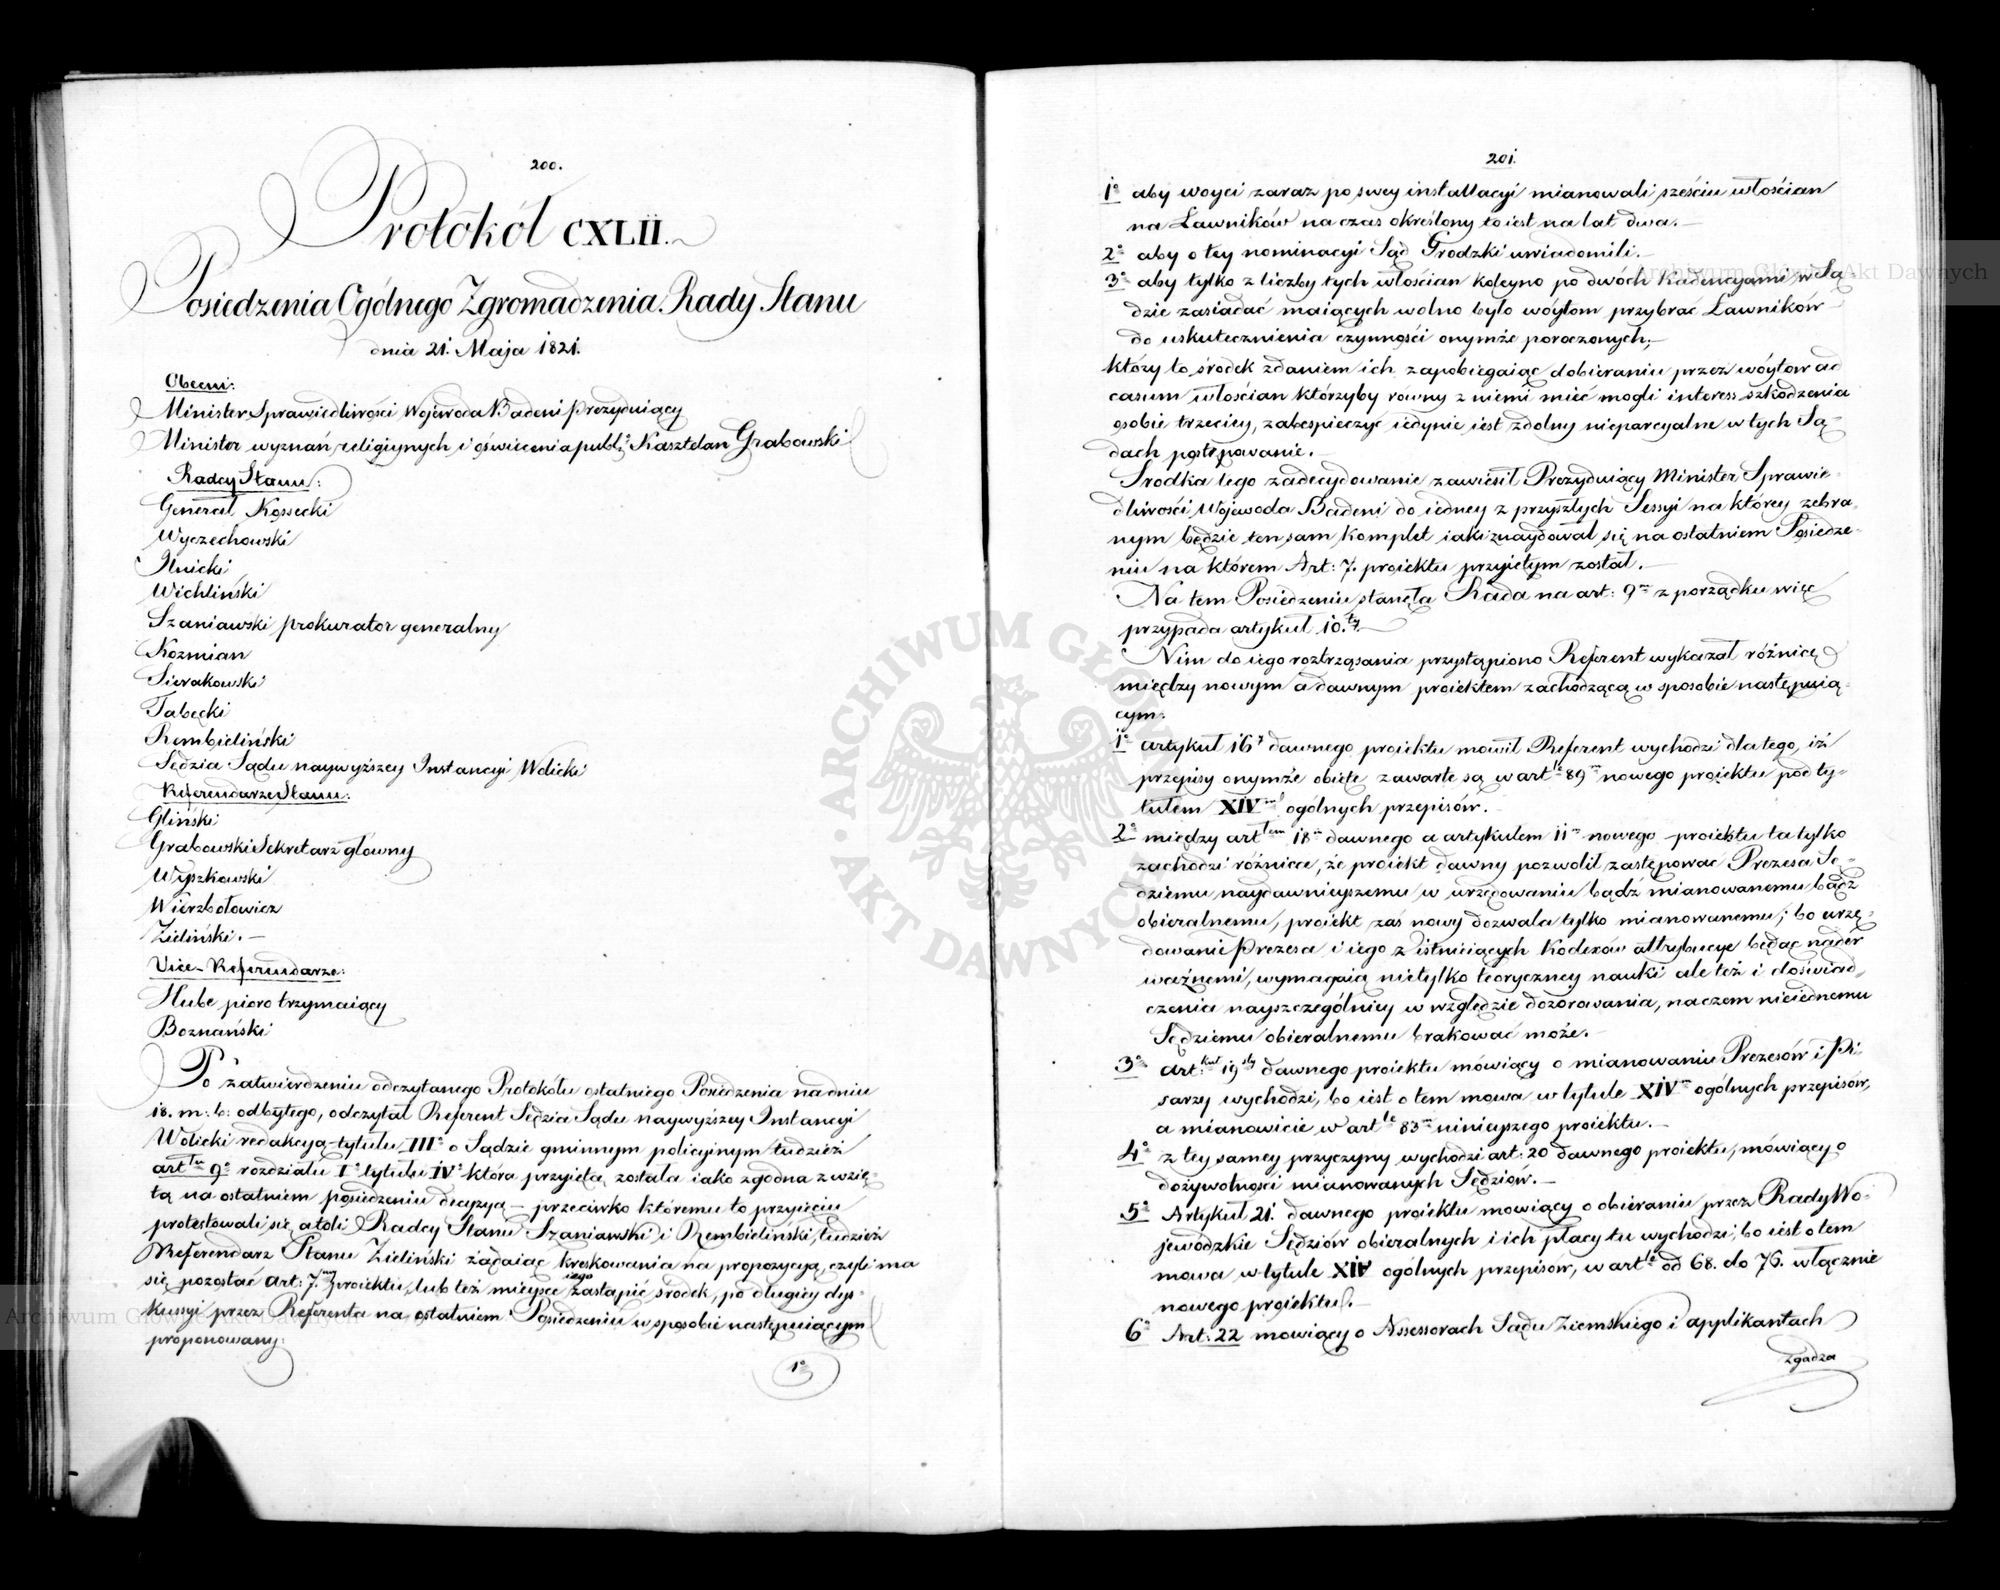 200.
Protokół CXLII.
Posiedzenia Ogólnego Zgromadzenia Rady Stanu
dnia 21. Maja 1821.
Obecni:
Minister Sprawiedliwości Wojewoda Badeni Prezyduiący
Minister wyznań religiynych i oświecenia publ: Kasztelan Grabowski
Radcy Stanu:
General Kossecki
Wyczechowski
Ilnicki
Wichliński
Szaniawski prokurator generalny
Kozmian
Sierakowski
Tabęcki
Rembieliński
Sędzia Sądu naywyższey Instancyi Wolicki
Referendarze Stanu:
Gliński
Grabowski Sekretarz główny
Wyszkowski
Wierzbołowicz
Zieliński. –
Vice-Referendarze:
Hube pioro trzymaiący
Boznański
Po zatwierdzeniu odczytanego Protokółu ostatniego Posiedzenia na dniu
18. m: b: odbytego, odczytał Referent Sędzia Sądu naywyższey Instancyi
Wolicki redakcyą tytulu III° o Sądzie gminnym policyjnym tudzież
art łu 9° rozdziału I° tytulu IV° która przyięta została iako zgodna z wzię-
tą na ostatniem posiedzeniu decyzyą – przeciwko któremu to przyięciu
protestowali się atoli Radcy Stanu Szaniawski i Rembieliński, tudzież
Referendarz Stanu Zieliński żądaiąc kreskowania na propozycyą, czyli ma
się pozostać art: 7. my proiektu, lub też mieysce iego zastąpić środek, po długiey dys-
kussyi przez Referenta na ostatniem Posiedzeniu w sposobie następuiącym
proponowany:
1°
201.
1° aby woyci zaraz po swey installacyi mianowali sześciu włościan
na Ławników na czas określony to iest na lat dwa. –
2° aby o tey nominacyi Sąd Grodzki uwiadomili. –
3° aby tylko z liczby tych włościan koleyno po dwóch kadencyami w Są-
dzie zasiadać maiących wolno było wóytom przybrać Ławników
do uskutecznienia czynności onymże poroczonych; –
który to środek zdaniem ich zapobiegaiąc dobieraniu przez wóytów ad
casum włościan którzyby równy z niemi mieć mogli interess szkodzenia
osobie trzeciey, zabespieczyć iedynie iest zdolny nieparcyalne w tych Są-
dach postępowanie. –
Srodka tego zadecydowanie zawiesił Prezyduiący Minister Sprawie-
dliwości Wojewoda Badeni do iedney z przyszłych Sessyi na którey zebra-
nym będzie ten sam komplet iaki znaydował się na ostatniem Posiedze-
niu na którem Art: 7. proiektu przyiętym został. –
Na tem Posiedzeniu stanęła Rada na art: 9 m z porządku więc
przypada artykuł 10. ty –
Nim do iego roztrząsania przystąpiono Referent wykazał różnicę
między nowym a dawnym proiektem zachodzącą w sposobie następuią-
cym:
1° artykuł 16 y dawnego proiektu mówił Referent wychodzi dla tego, iż
przepisy onymże obięte zawarte są w art le 89 m nowego proiektu pod ty-
tułem XIV m ogólnych przepisów. –
2° między art łem 18 m dawnego a artykułem 11 m nowego proiektu ta tylko
zachodzi różnica, że proiekt dawny pozwolił zastępować Prezesa Sę-
dziemu naydawnieyszemu w urzędowaniu bądź mianowanemu bądź
obieralnemu, proiekt zaś nowy dozwala tylko mianowanemu; bo urzę-
dowanie Prezesa i iego z istnieiących Kodexów attrybucye będąc nader
ważnemi, wymagaią nietylko teoryczney nauki ale też i doświad-
czenia nayszczególniey w względzie dozorowania, na czem nieiednemu
Sędziemu obieralnemu brakować może. –
3° art: kuł 19 sty dawnego proiektu mówiący o mianowaniu Prezesów i Pi-
sarzy wychodzi, bo iest o tem mowa w tytule XIV m ogólnych przepisów,
a mianowicie w art le 83 m ninieyszego proiektu. –
4° z tey samey przyczyny wychodzi art: 20 dawnego proiektu, mówiący o
dożywotności mianowanych Sędziów. –
5° Artykuł 21. dawnego proiektu mówiący o obieraniu przez Rady Wo-
jewódzkie Sędziów obieralnych i ich płacy tu wychodzi; bo iest o tem
mowa w tytule XIV ogólnych przepisów, w art le od 68. do 76. włącznie
nowego proiektu. –
6° Art: 22 mówiący o Assessorach Sądu Ziemskiego i applikantach
zgadza
Archiwum Główne Akt Dawnych
Archiwum Główne Akt Dawnych
ARCHIWUM GŁÓWNE AKT DAWNYCH